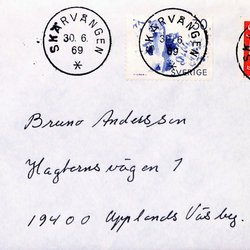 SKÄRVÄNGEN
30. 6.
69
SKÄRVÄNGEN
30. 6.
69
SVERIGE
Bruno Andersson
Hagtornsvägen 7
19400 Upplands Väsby.